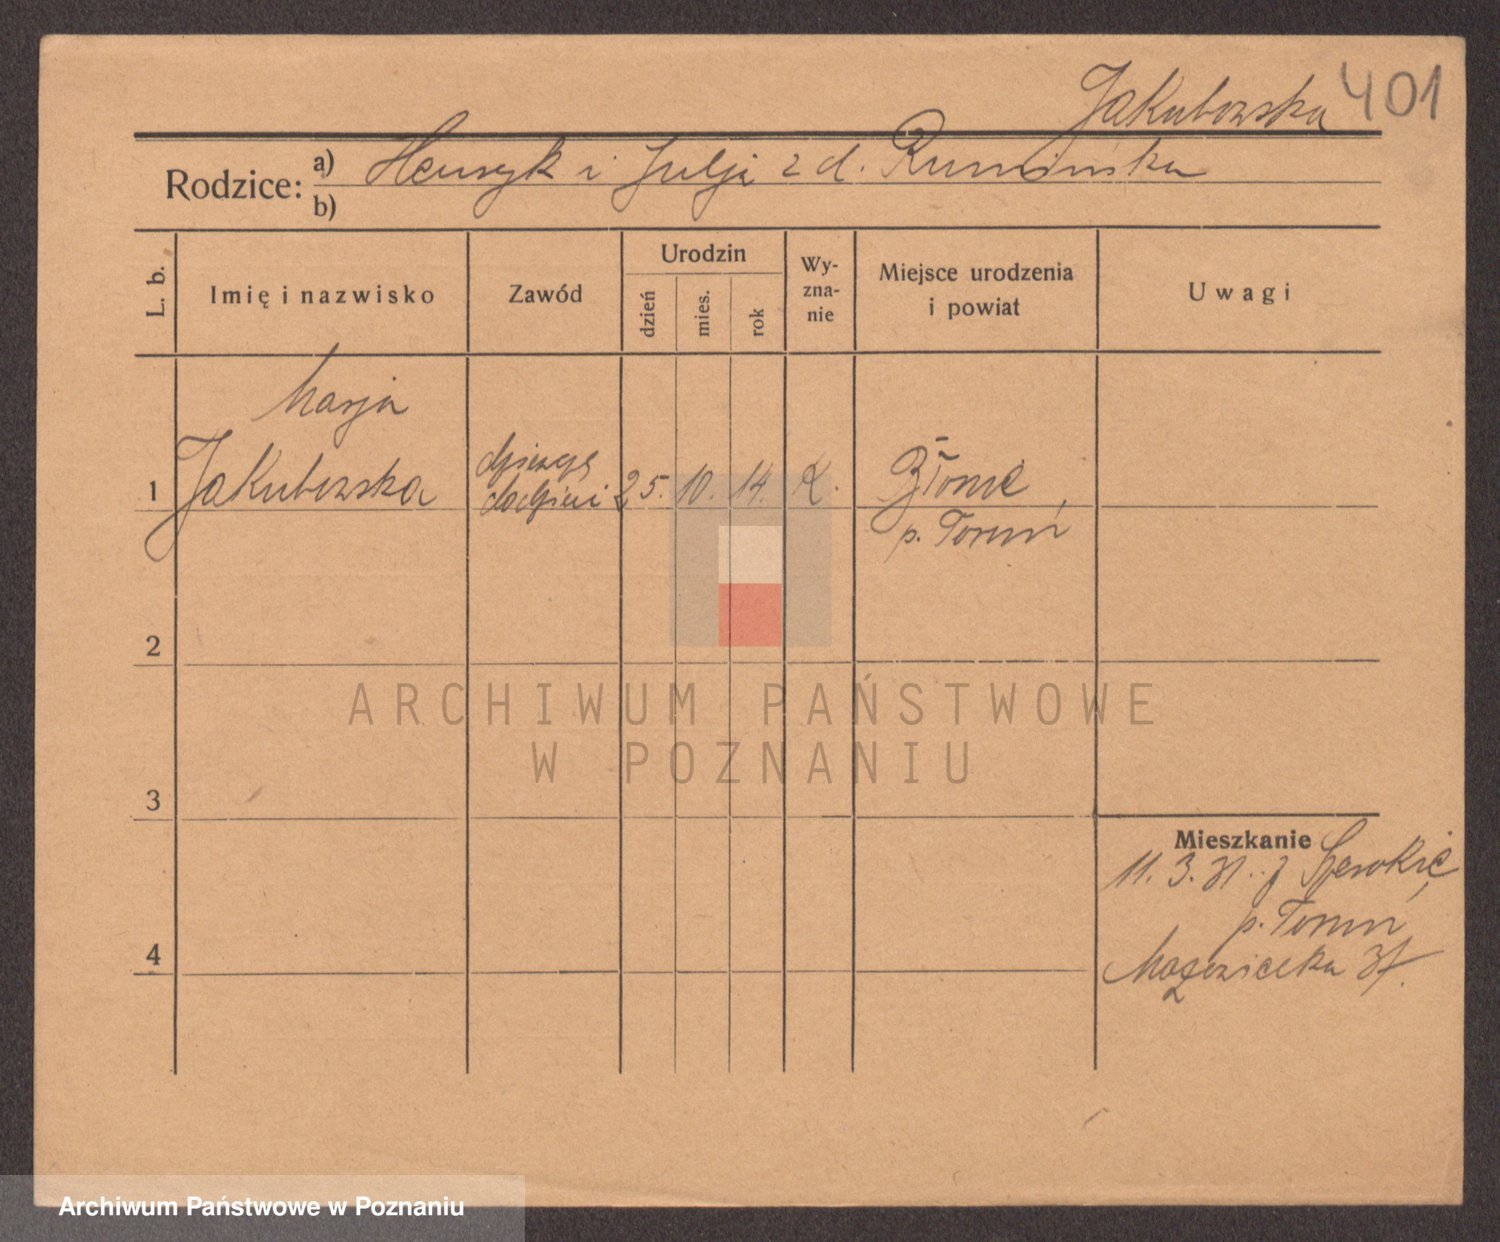 Jakubowska 401
Rodzice: a) Henryk i Julja z d. Rumińska
b)
L. b.
Imię i nazwisko
Zawód
Urodzin
dzień
mies.
rok
Wy-
zna-
nie
Miejsce urodzenia
i powiat
Uwagi
Marja
1 Jakubowska
25. 10. 14. K.
p. Toruń
2
3
4
Mieszkanie
11. 3. 31. z
p. Toruń
Mazowiecka
ARCHIWUM PAŃSTWOWE
W POZNANIU
Archiwum Państwowe w Poznaniu